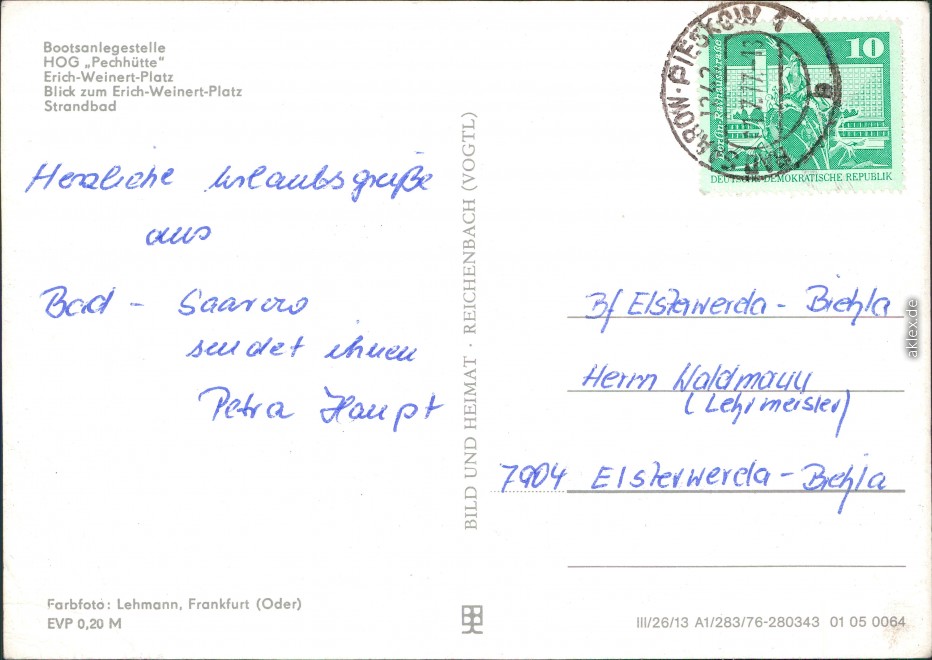 Bootsanlegestelle
HOG „Pechhütte“
Erich-Weinert-Platz
Blick zum Erich-Weinert-Platz
Strandbad
Herzliche Urlaubsgrüße
aus
Bad - Saarow
sendet ihnen
Petra Haupt
Farbfoto: Lehmann, Frankfurt (Oder)
EVP 0,20 M
BILD UND HEIMAT · REICHENBACH (VOGTL)
BAD SAAROW-PIESKOW 1
1242
10
Berlin-Rathausstraße
DEUTSCHE DEMOKRATISCHE REPUBLIK
Bf Elsterwerda - Biehla
Herrn Waldmann
(Lehrmeister)
7904 Elsterwerda - Biehla
III/26/13 A1/283/76-280343 01 05 0064
aklex.de